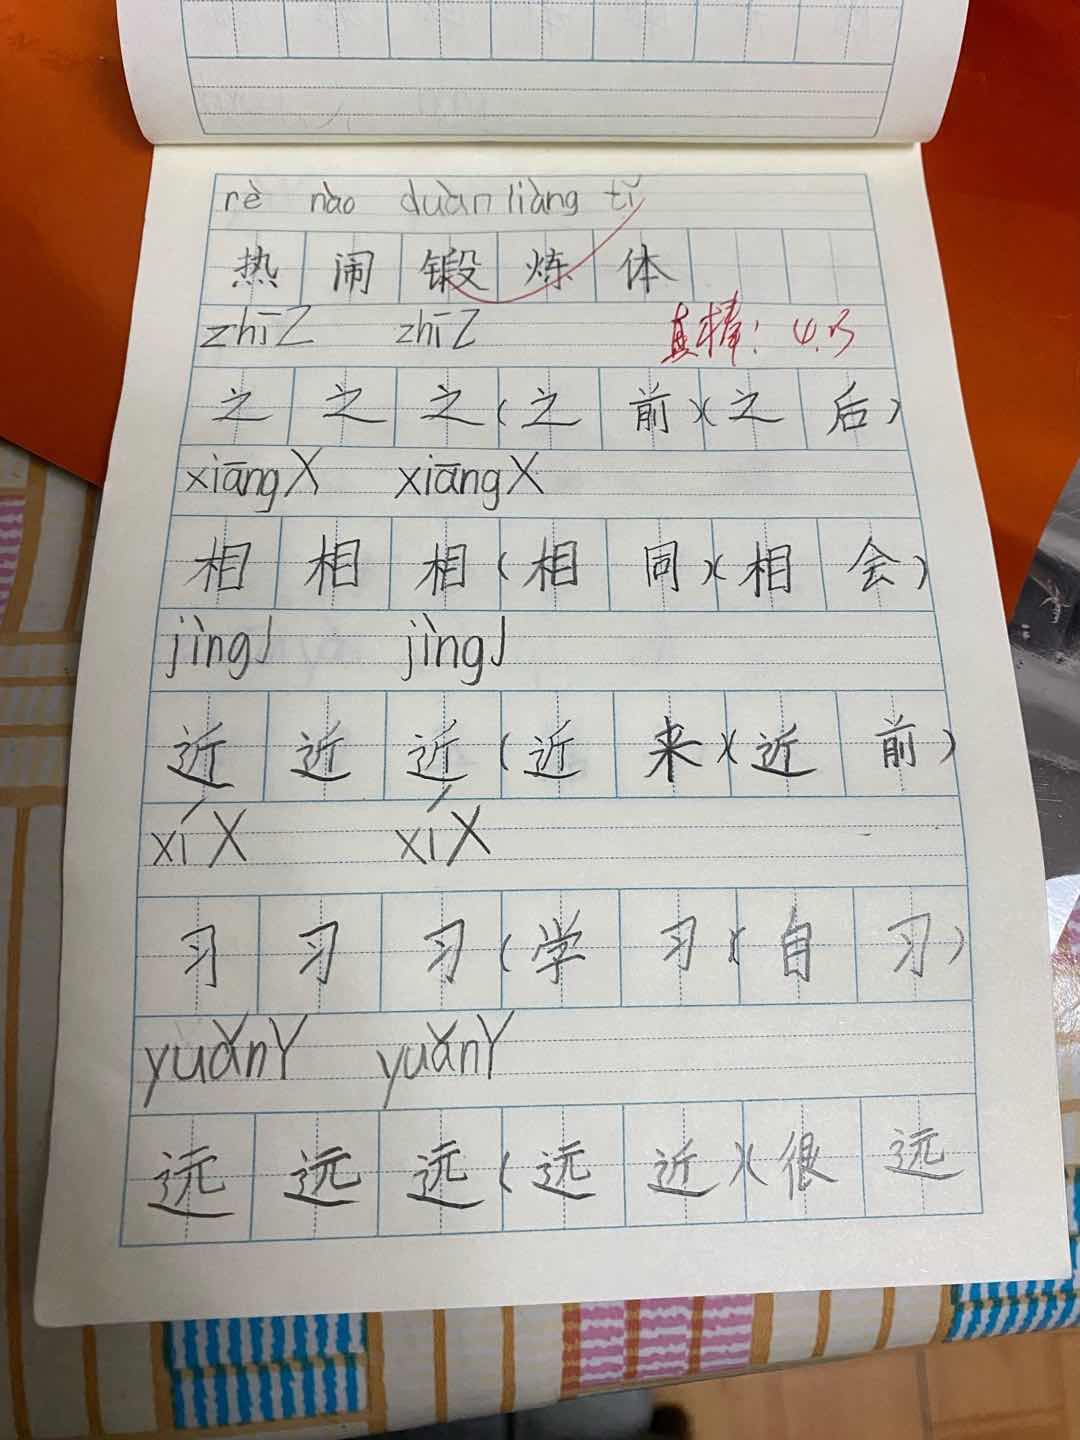 rè nào duàn liàng tǐ
热闹锻炼体
zhīZ zhīZ
真棒! 4.3
之之之(之前)(之后)
xiāngX xiāngX
相相相(相同)(相会)
jìngJ jìngJ
近近近(近来)(近前)
xíX xíX
习习习(学习)(自习)
yuǎnY yuǎnY
远远远(远近)(很远)